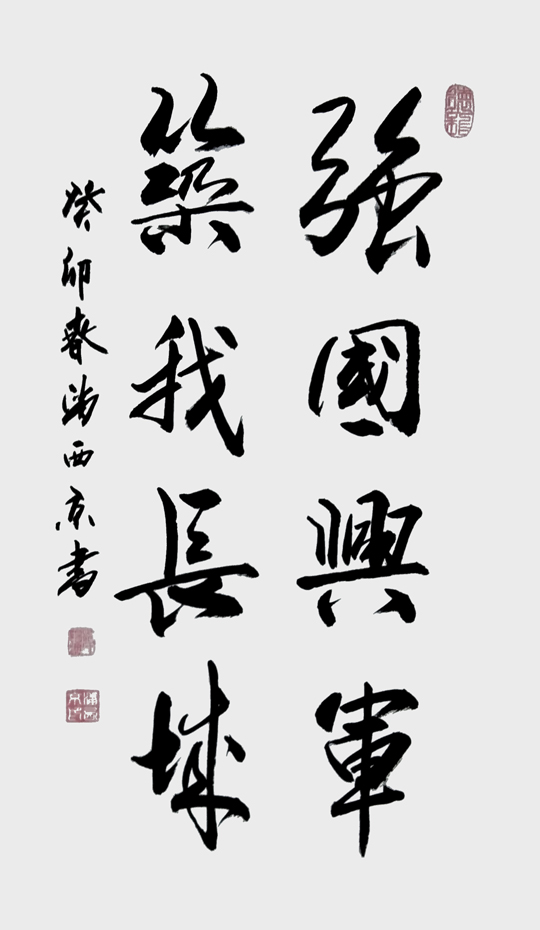 強國興軍
築我長城
癸卯春满西京書